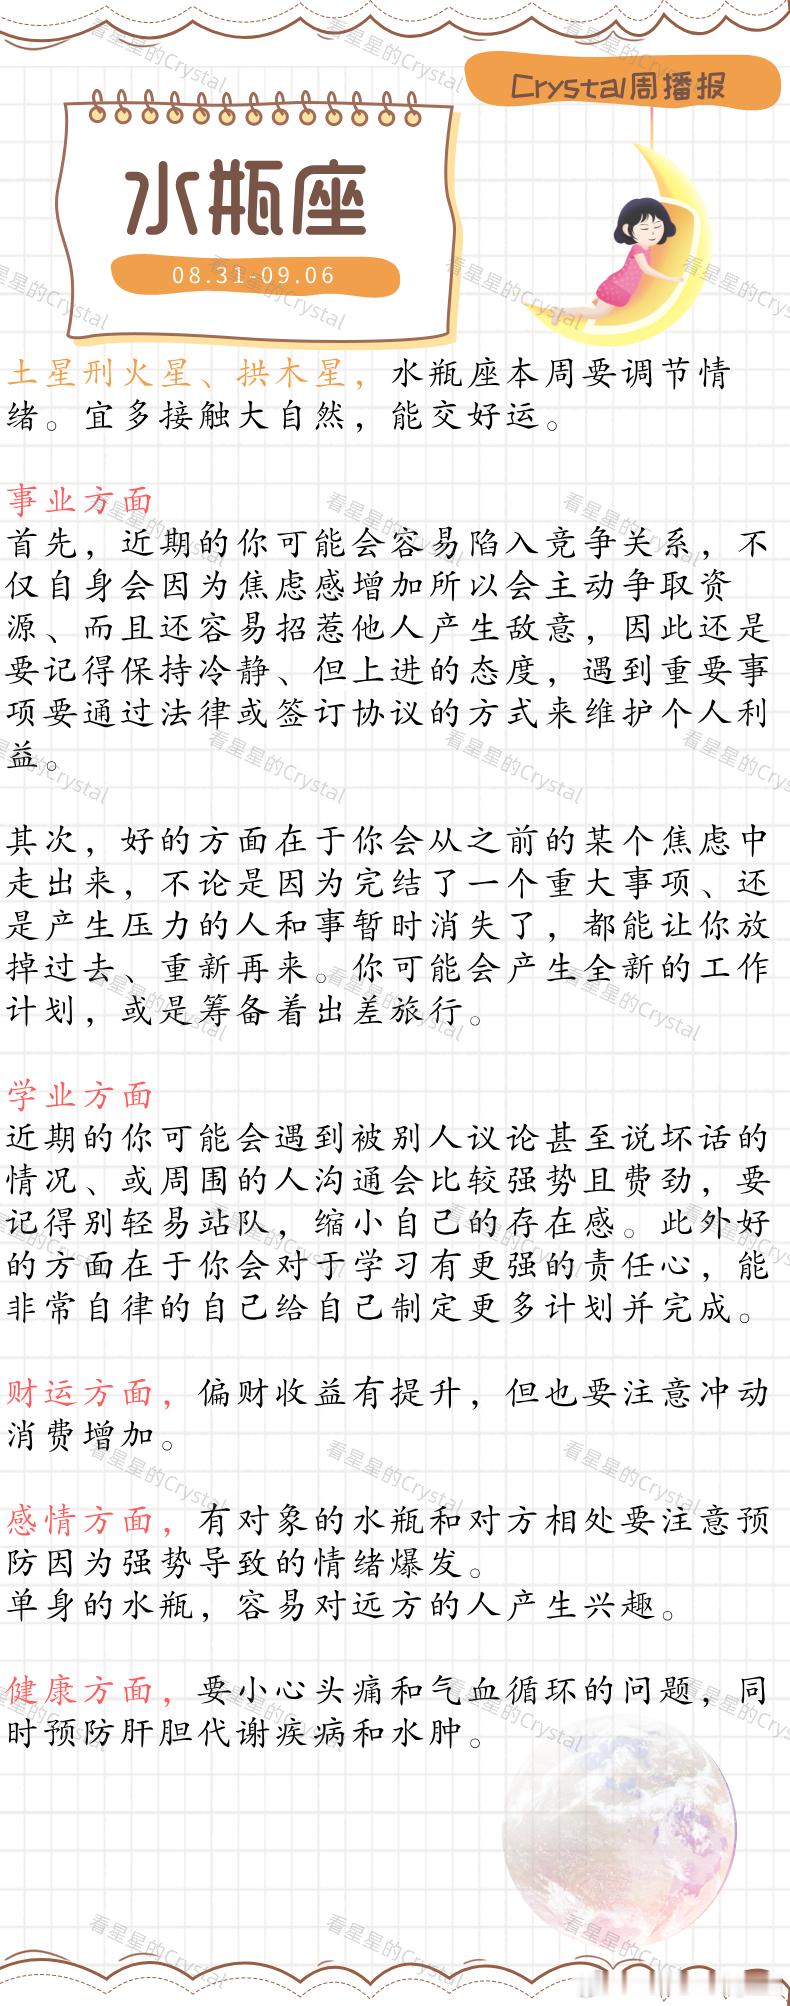 Crystal周播报
水瓶座
08.31-09.06
土星刑火星、拱木星，水瓶座本周要调节情
绪。宜多接触大自然，能交好运。
事业方面
首先，近期的你可能会容易陷入竞争关系，不
仅自身会因为焦虑感增加所以会主动争取资
源、而且还容易招惹他人产生敌意，因此还是
要记得保持冷静、但上进的态度，遇到重要事
项要通过法律或签订协议的方式来维护个人利
益。
其次，好的方面在于你会从之前的某个焦虑中
走出来，不论是因为完结了一个重大事项、还
是产生压力的人和事暂时消失了，都能让你放
掉过去、重新再来。你可能会产生全新的工作
计划，或是筹备着出差旅行。
学业方面
近期的你可能会遇到被别人议论甚至说坏话的
情况、或周围的人沟通会比较强势且费劲，要
记得别轻易站队，缩小自己的存在感。此外好
的方面在于你会对于学习有更强的责任心，能
非常自律的自己给自己制定更多计划并完成。
财运方面，偏财收益有提升，但也要注意冲动
消费增加。
感情方面，有对象的水瓶和对方相处要注意预
防因为强势导致的情绪爆发。
单身的水瓶，容易对远方的人产生兴趣。
健康方面，要小心头痛和气血循环的问题，同
时预防肝胆代谢疾病和水肿。
看星星的Crystal